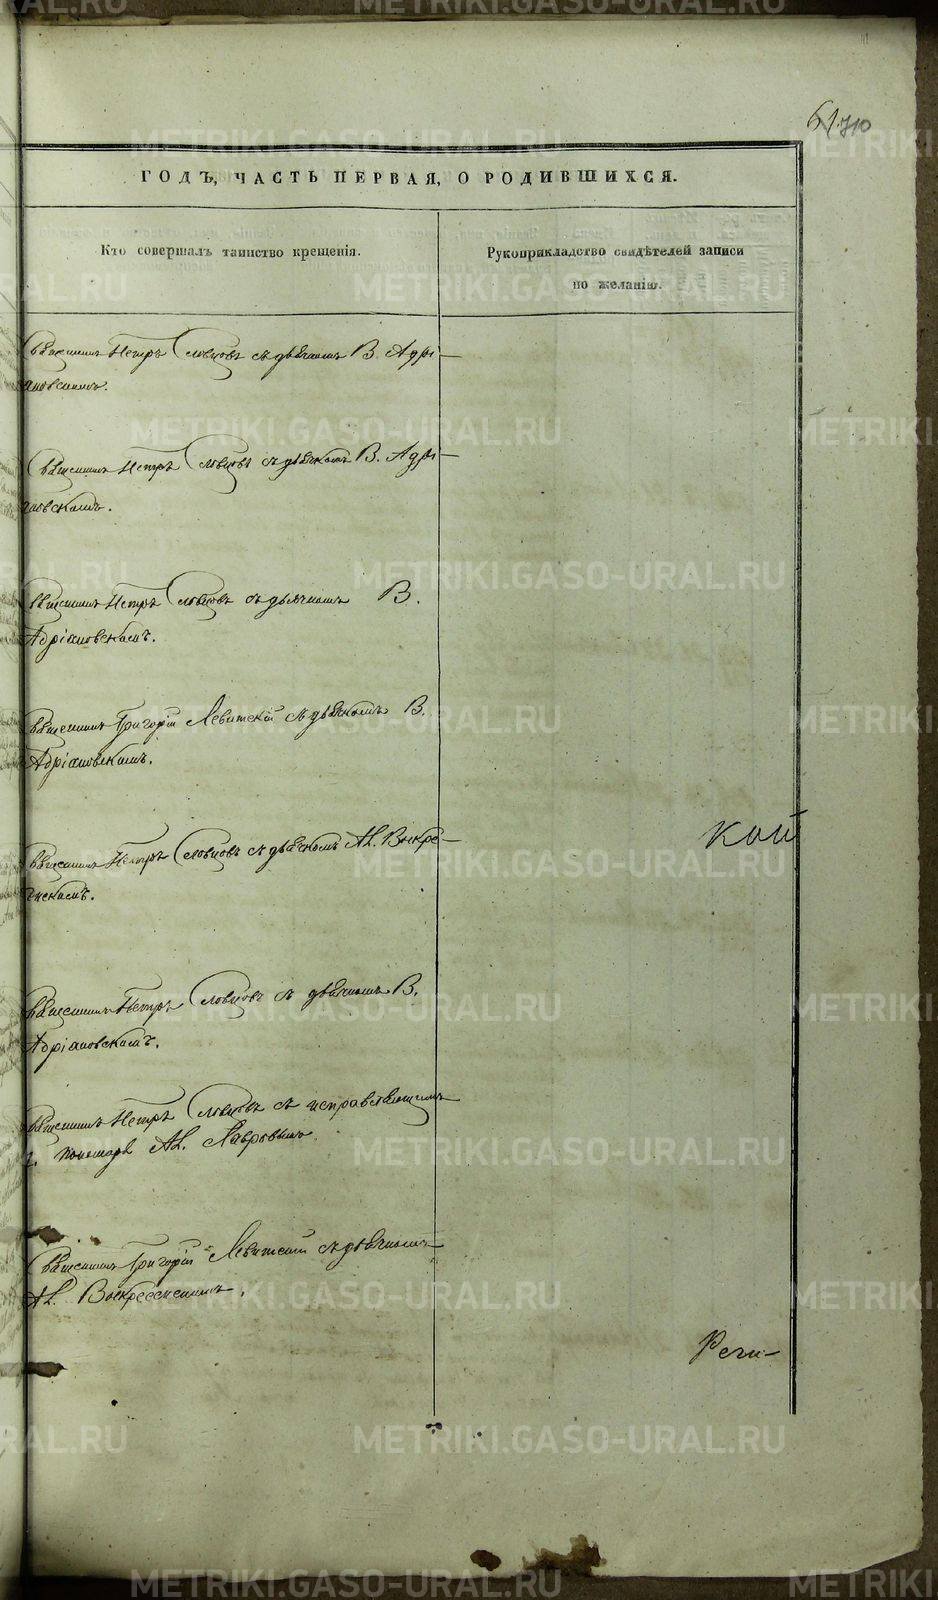 61. 710
ГОДЪ, ЧАСТЬ ПЕРВАЯ, О РОДИВШИХСЯ.
Кто совершалъ таинство крещенія.
Рукоприкладство свидѣтелей записи
по желанію.
Священникъ Петръ Словцовъ съ дьячкомъ В. Адрі-
ановскимъ.
Священникъ Петръ Словцовъ съ дьячкомъ В. Адрі-
ановскимъ.
Священникъ Петръ Словцовъ съ дьячкомъ В.
Адріановскимъ.
Священникъ Григорій Левитскій съ дьячкомъ В.
Адріановскимъ.
Священникъ Петръ Словцовъ съ дьячкомъ Ал. Воскре-
сенскимъ.
кой
Священникъ Петръ Словцовъ съ дьячкомъ В.
Адріановскимъ.
Священникъ Петръ Словцовъ съ исправляющимъ
пономаря Ал. Лавровымъ.
Священникъ Григорій Левитскій съ дьячкомъ
Ал. Воскресенскимъ.
Реги-
METRIKI.GASO-URAL.RU